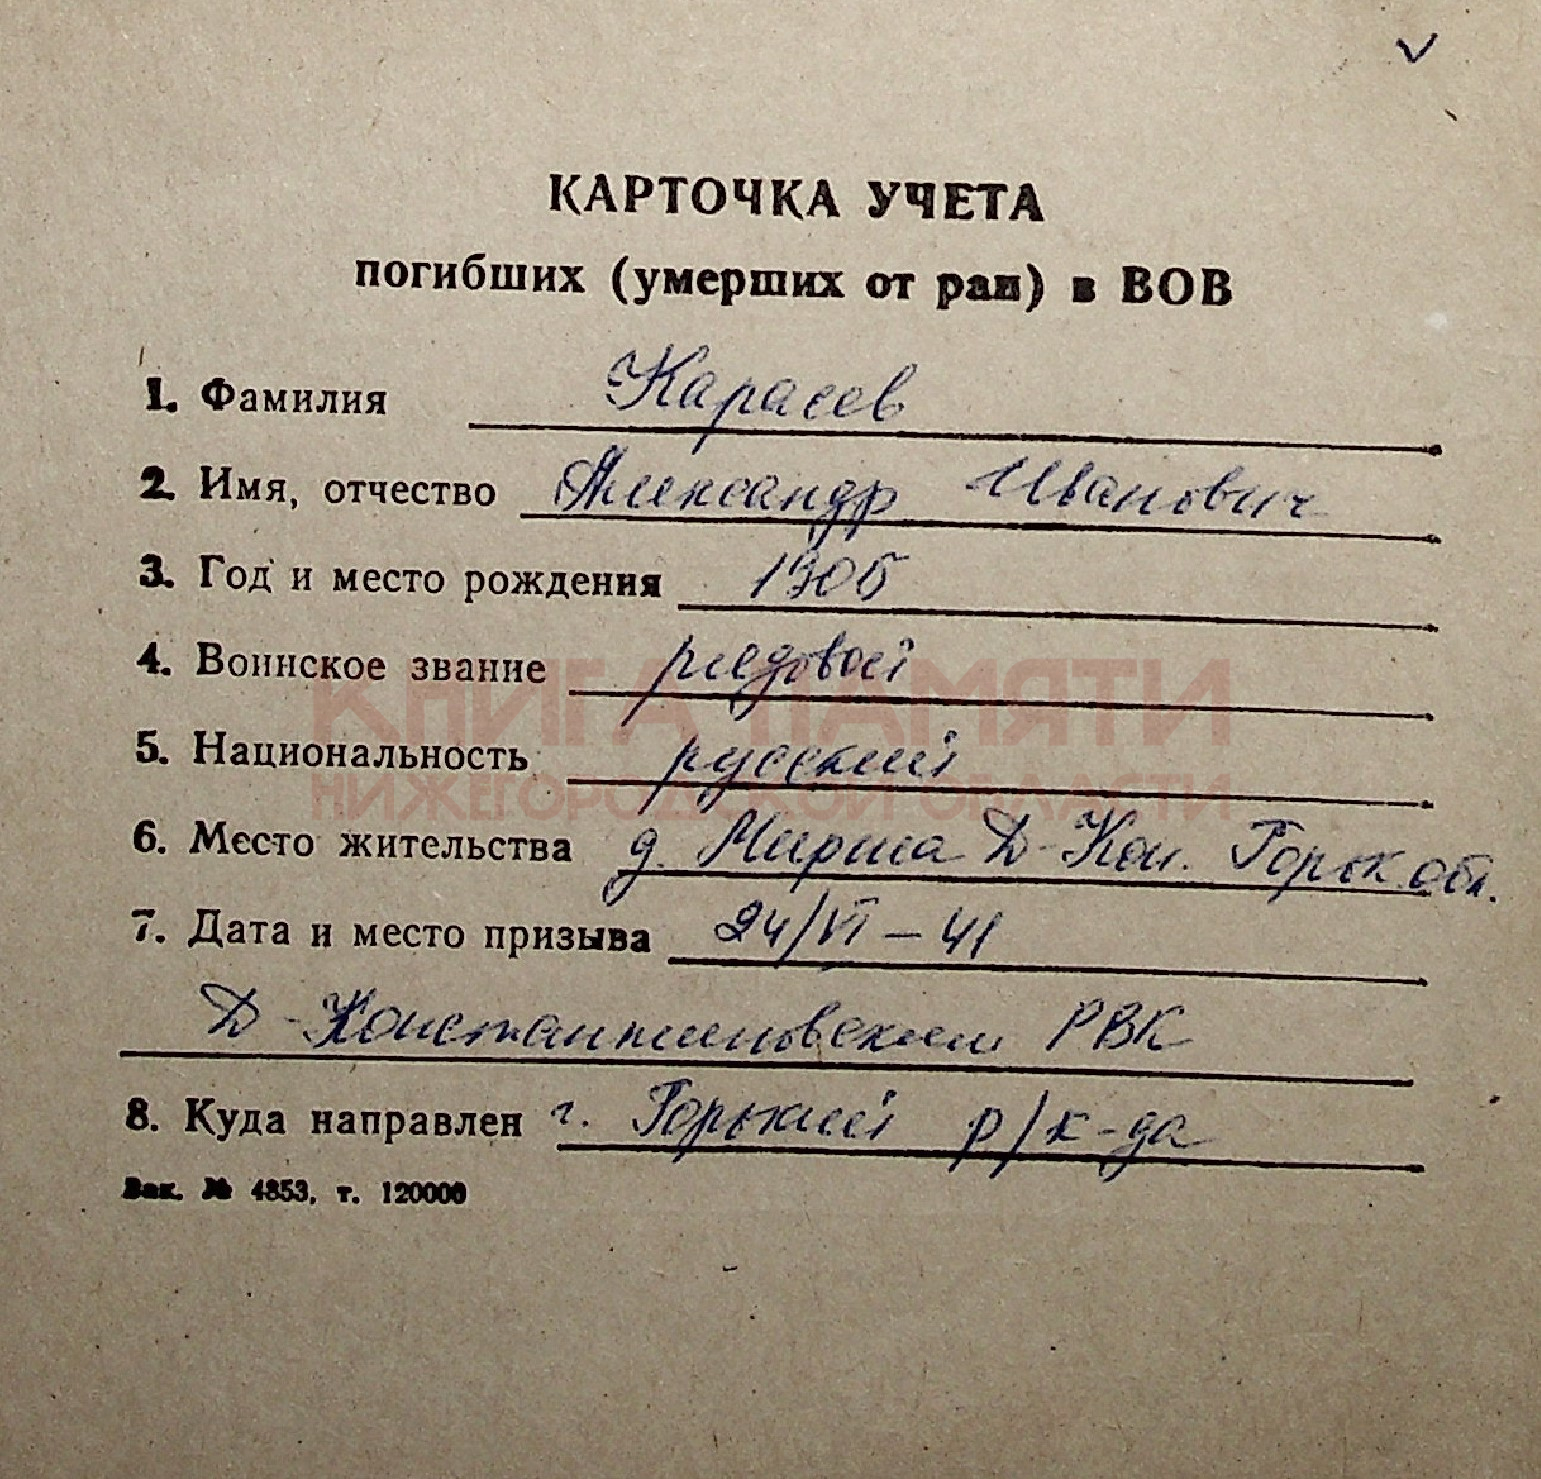 КАРТОЧКА УЧЕТА
погибших (умерших от ран) в ВОВ
1. Фамилия Карасев
2. Имя, отчество Александр Иванович
3. Год и место рождения 1905
4. Воинское звание рядовой
КНИГА ПАМЯТИ
5. Национальность русский
НИЖЕГОРОДСКОЙ ОБЛАСТИ
6. Место жительства д. Д-Кон. Горьк. обл.
7. Дата и место призыва 24/VI – 41
Д-Константиновским РВК
8. Куда направлен г. Горький р/к-да
Зак. № 4853, т. 120000